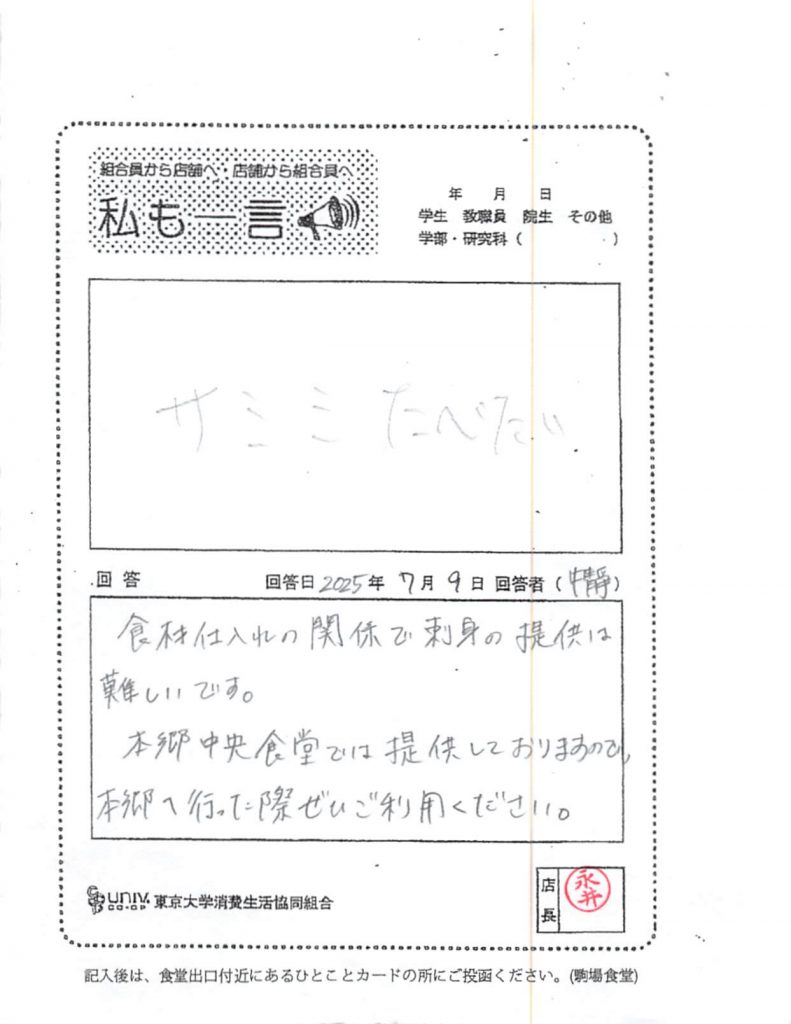 組合員から店舗へ・店舗から組合員へ
私も一言
年 月 日
学生 教職員 院生 その他
学部・研究科( )
サミミ たべたい
回答 回答日 2025年 7月 9日 回答者( )
食材仕入れの関係で刺身の提供は
難しいです。
本郷中央食堂では提供しておりますので、
本郷へ行った際ぜひご利用ください。
UNIV. CO-OP 東京大学消費生活協同組合
店長
永井
記入後は、食堂出口付近にあるひとことカードの所にご投函ください。(駒場食堂)